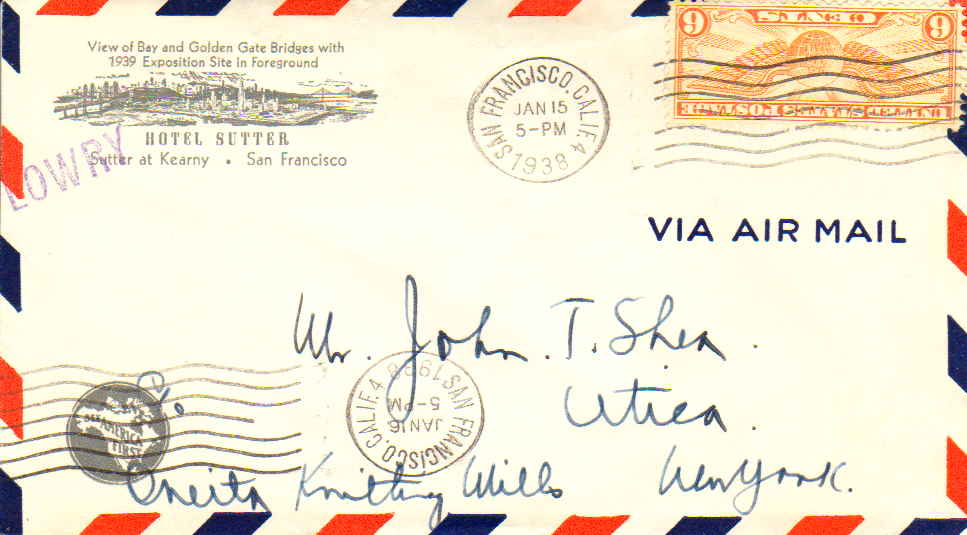 View of Bay and Golden Gate Bridges with
1939 Exposition Site in Foreground
HOTEL SUTTER
Sutter at Kearny • San Francisco
LOWRY
SAN FRANCISCO, CALIF. 4
JAN 15
5-PM
1938
9 9
VIA AIR MAIL
Mr. John T. Shea.
Utica
C/o
Oneita Knitting Mills New York.
SEE AMERICA
FIRST
SAN FRANCISCO, CALIF. 4
JAN 16
5-PM
1938